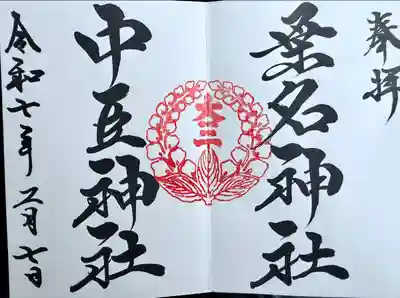 奉拝
桑名神社
本三
中臣神社
令和七年二月七日